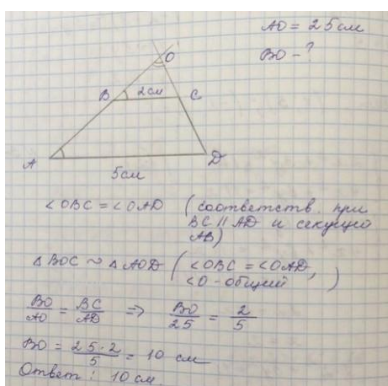 AO = 25 см
BO - ?
O
B 2 см C
A D
5 см
∠OBC = ∠OAD (соответств. при
BC || AD и секущей
AB)
△BOC ~ △AOD (∠OBC = ∠OAD,
∠O - общий)
BO/AO = BC/AD => BO/25 = 2/5
BO = 25·2/5 = 10 см
Ответ: 10 см.